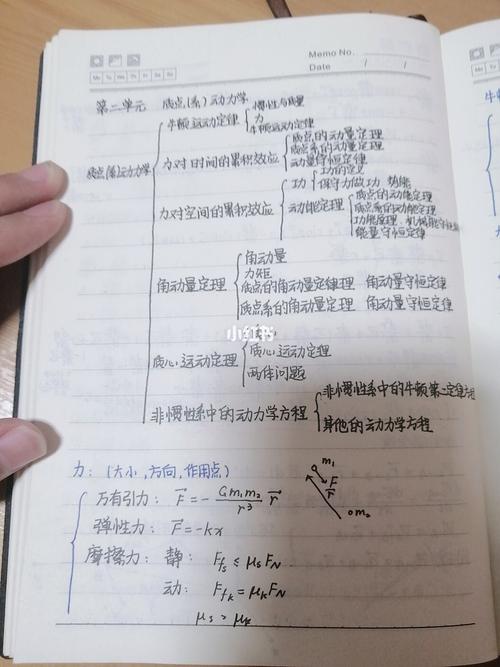 Memo No.
Mo Tu We Th Fr Sa Su
Date / /
第二单元 质点(系)动力学
质点(系)动力学
牛顿运动定律
惯性与质量
力
牛顿运动定律
力对时间的累积效应
质点的动量定理
质点系的动量定理
动量守恒定律
力对空间的累积效应
功
功的定义
保守力做功 势能
动能定理
质点的动能定理
质点系的动能定理
功能原理、机械能守恒
能量守恒定律
角动量定理
角动量
力矩
质点的角动量定律理 角动量守恒定律
质点系的角动量定理 角动量守恒定律
小红书
质心运动定理
质心运动定理
两体问题
非惯性系中的动力学方程
非惯性系中的牛顿第二定律方程
其他的动力学方程
力: (大小,方向,作用点)
万有引力: F⃗ = - Gm₁m₂/r³ r⃗
m₁
F⃗
r⃗
m₂
弹性力: F⃗ = -kx
摩擦力: 静: Ffs ≤ μsFN
动: Ffk = μkFN
μs > μk